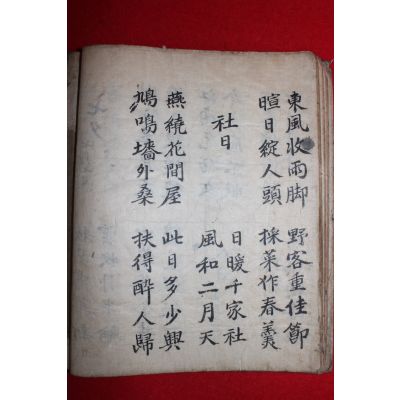 東風收雨脚 野客重佳節
暄日綻人頭 採菜作春羹
社日
日暖千家社
風和二月天
燕繞花間屋 此日多少興
鳩鳴墻外桑 扶得醉人歸